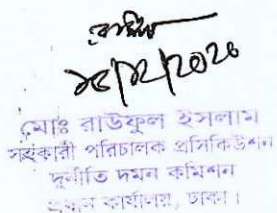 মোঃ রাউফুল ইসলাম
সহকারী পরিচালক প্রসিকিউশন
দুর্নীতি দমন কমিশন
প্রধান কার্যালয়, ঢাকা।